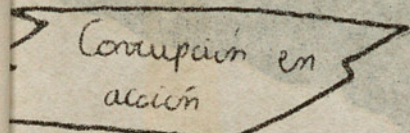 Corrupción en
acción